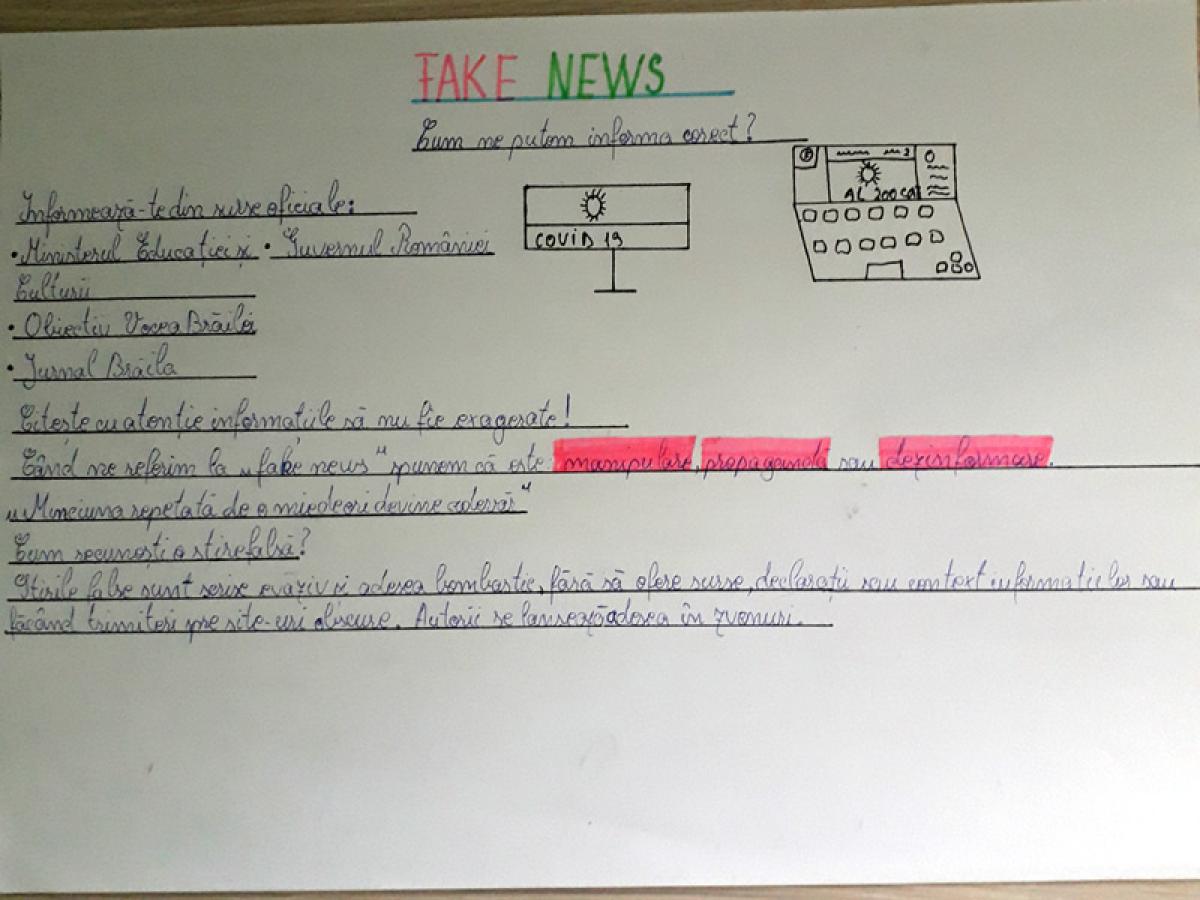 FAKE NEWS
Cum ne putem informa corect?
Informează-te din surse oficiale:
• Ministerul Educației și • Guvernul României
Culturii
• Obiectiv Vocea Brăilei
• Jurnal Brăila
COVID 19
AL 200 CA
Citește cu atenție informațiile să nu fie exagerate!
Când ne referim la „fake news" spunem că este: manipulare, propagandă sau dezinformare.
„Minciuna repetată de o mie de ori devine adevăr"
Cum recunoști o știre falsă?
Știrile false sunt scrise evaziv și adesea bombastic, fără să ofere surse, declarații sau context informațiilor sau
făcând trimiteri spre site-uri obscure. Autorii se lansează adesea în zvonuri.